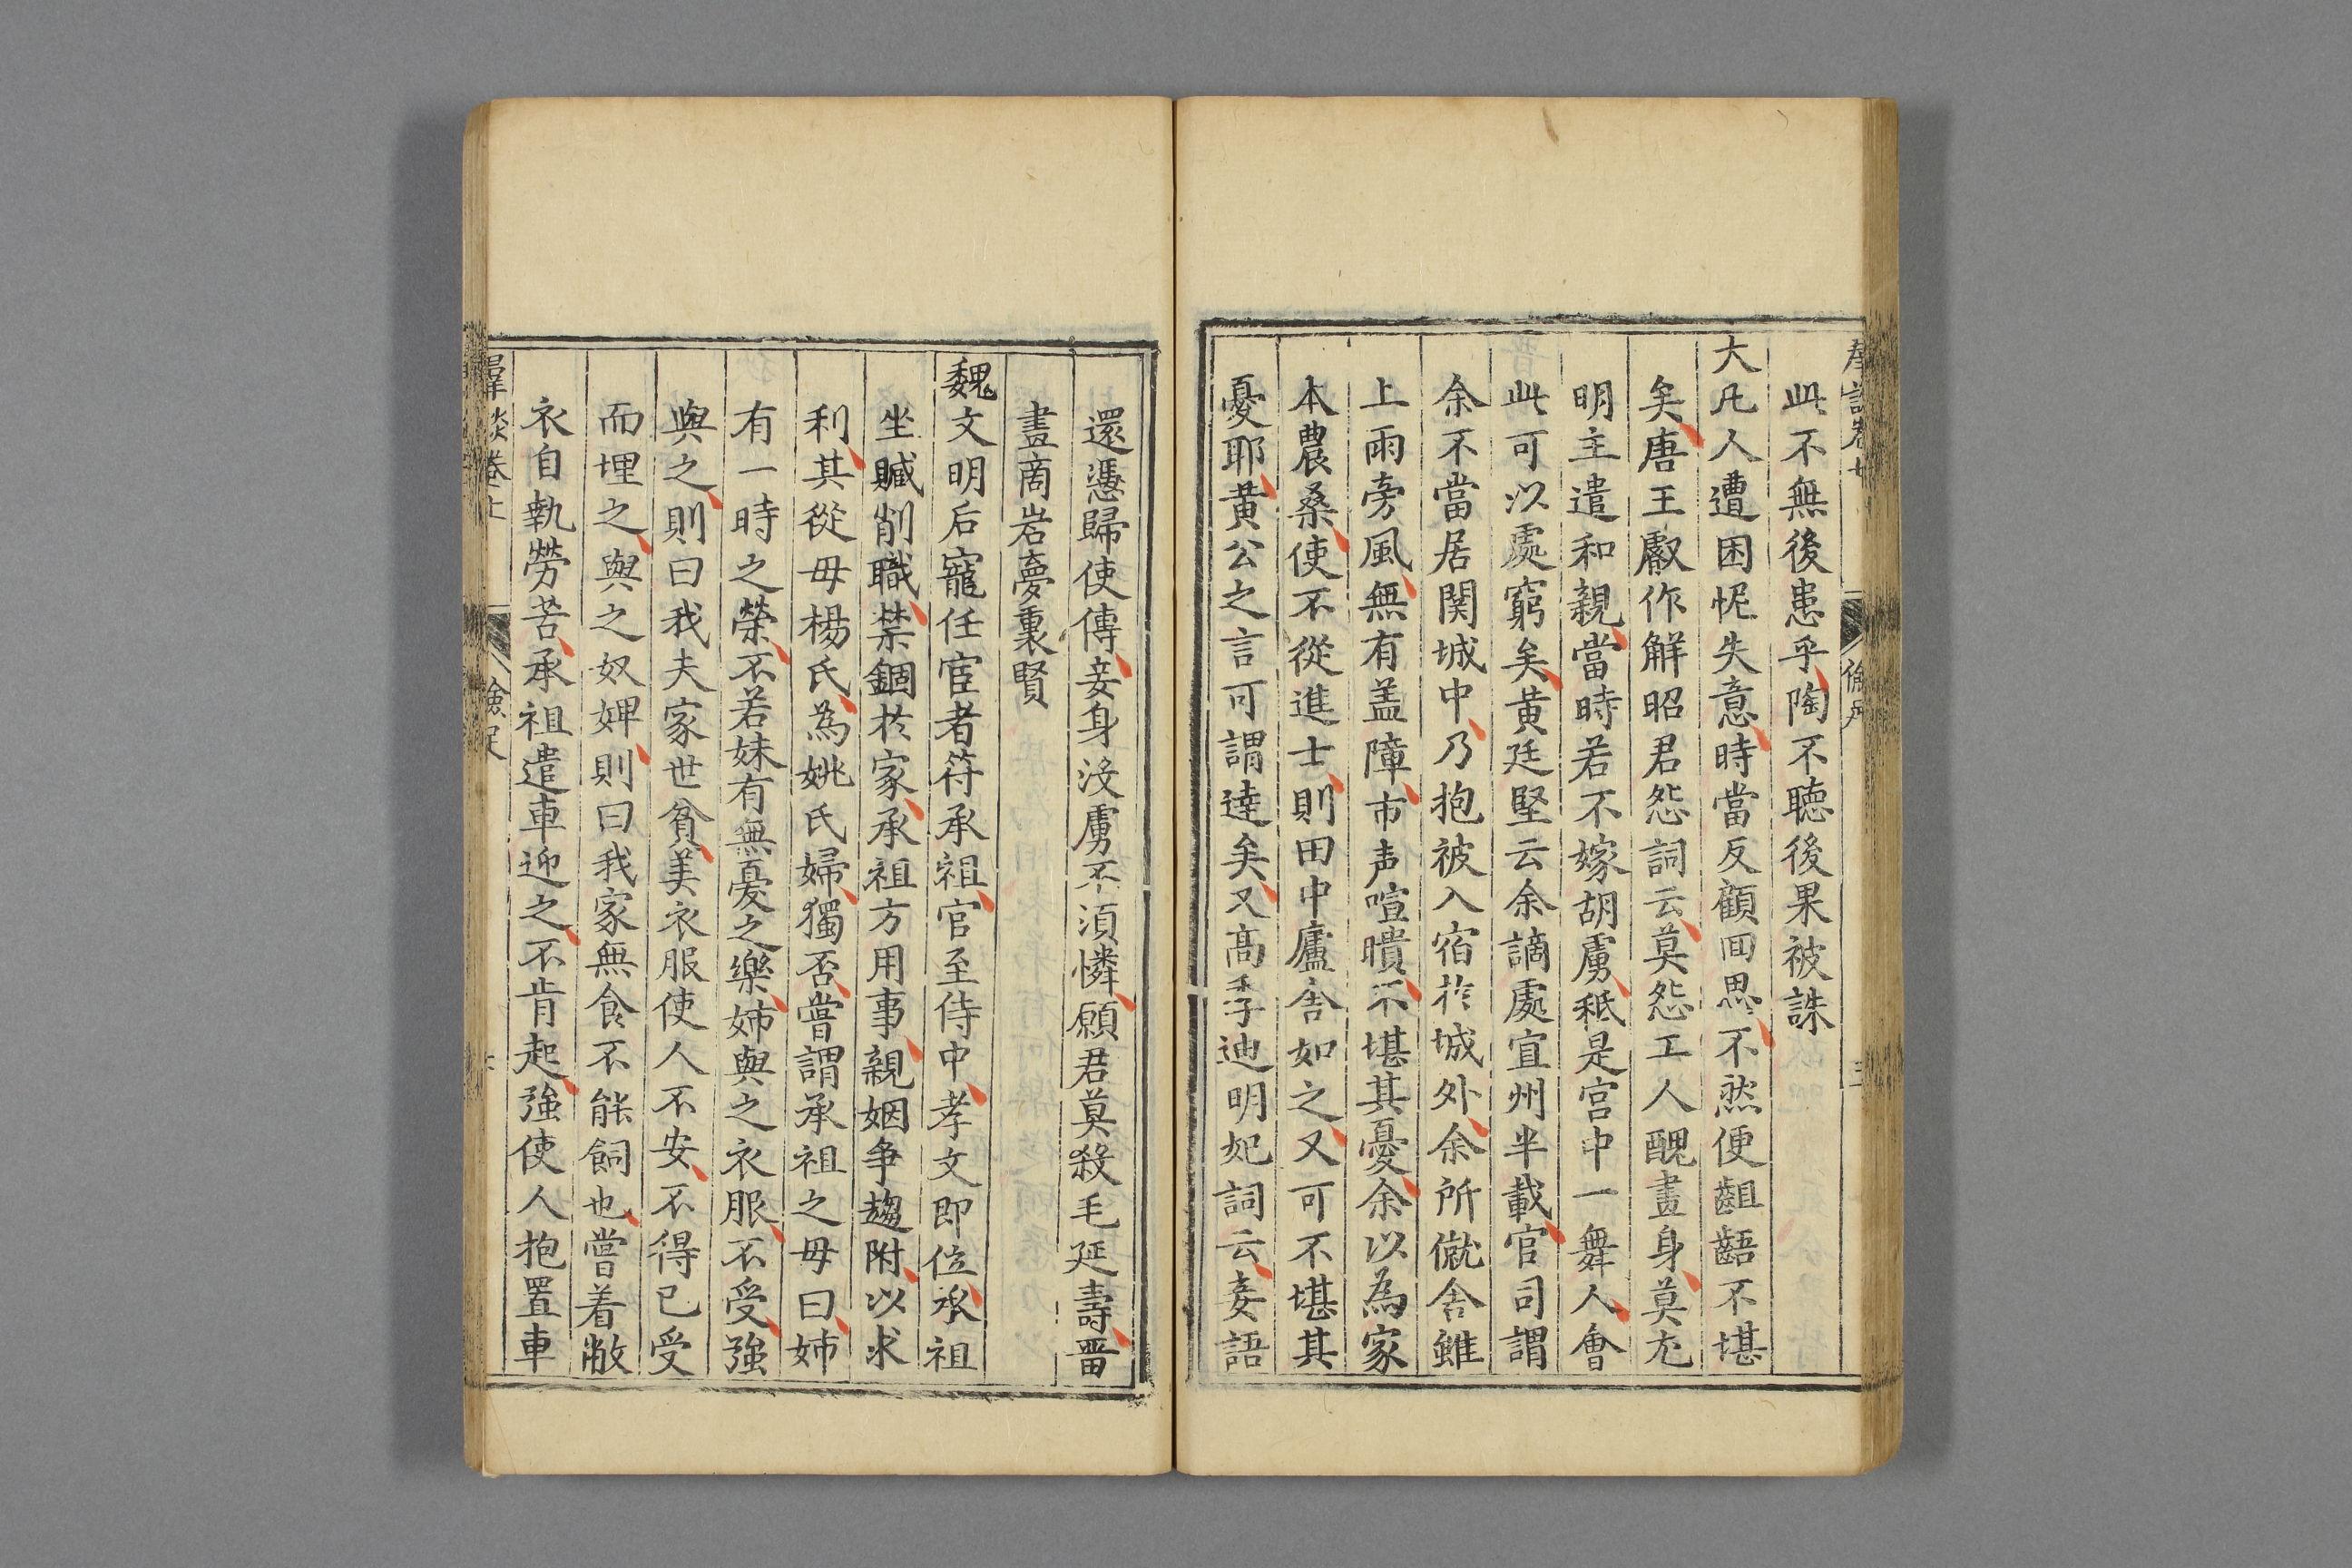 此不無後患乎陶不聴後果被誅
大凡人遭困怩失意時當反顧回思不然便齟齬不堪
矣唐王叡作解昭君怨詞云莫怨工人醜畫身莫尤
明主遣和親當時若不嫁胡虜秪是宮中一舞人會
此可以處窮矣黄廷堅云余謫處宜州半載官司謂
余不當居関城中乃抱被入宿扵城外余所僦舎雖
上雨旁風無有盖障市声喧瞶不堪其憂余以為家
本農桑使不從進士則田中廬舎如之又可不堪其
憂耶黄公之言可謂達矣又髙季迪明妃詞云妾語
還憑歸使傳妾身没虜不湏憐願君莫殺毛延壽畱
畫商岩夣裏賢
魏文明后寵任宦者符承祖官至侍中孝文即位承祖
坐贓削職禁錮扵家承祖方用事親姻争趨附以求
利其從母楊氏為姚氏婦獨否嘗謂承祖之母曰姊
有一時之榮不若妹有無憂之樂姊與之衣服不受強
與之則曰我夫家世貧美衣服使人不安不得已受
而埋之與之奴婢則曰我家無食不能飼也嘗着敝
衣自執勞苦承祖遣車迎之不肯起強使人抱置車